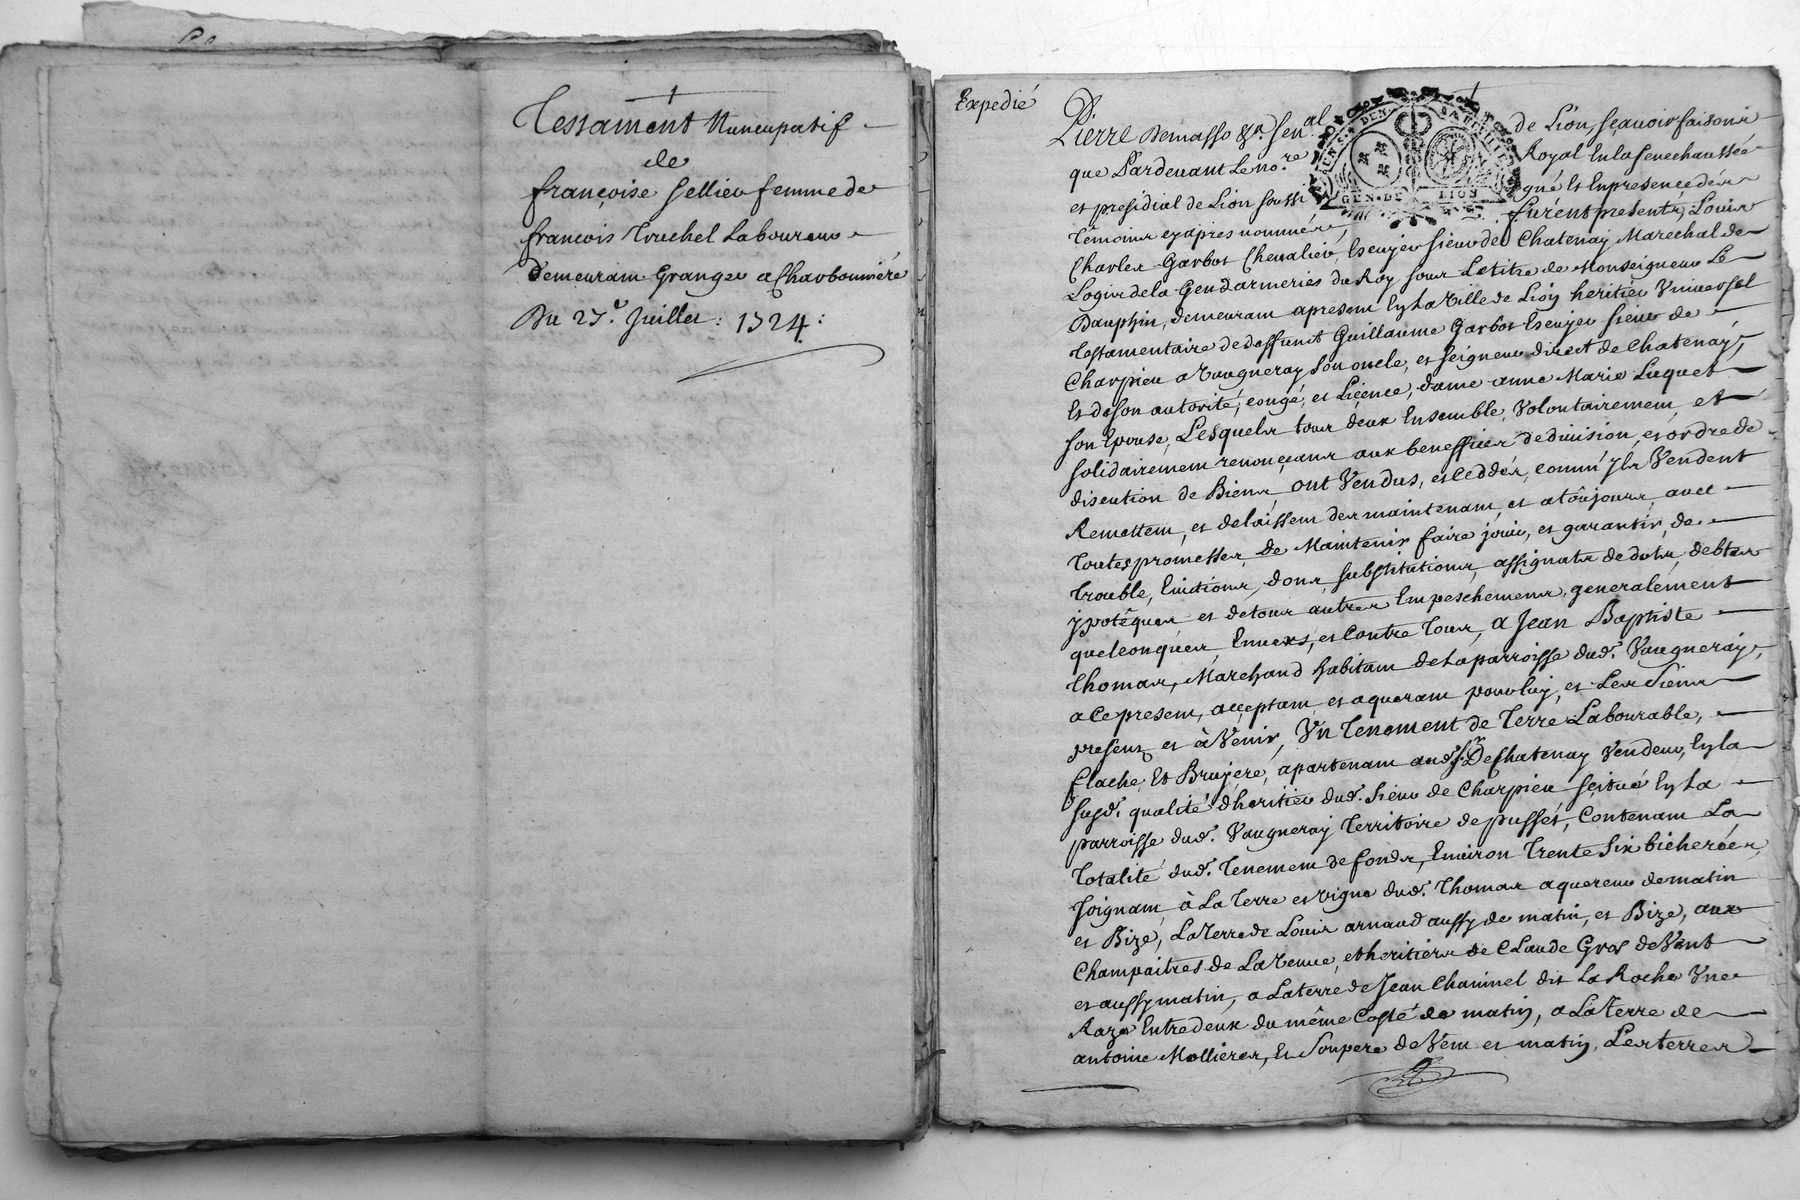 Testament Nuncupatif
de
françoise Sellier femme de
françois Truchel Laboureur
demeurant Granger a Charbonnière
Du 27.e Juillet : 1724 :
Expedié
Pierre Demasso &a. Sen.al de Lion, sçauoir faisons
que Pardeuant Le no.re Royal En la senechaussée
et présidial de Lion soussigné Et En presence des
Témoins cy apres nommés, furent presents, Louis
Charles Garbot Cheualier, Escuyer sieur de Chatenay Marechal de
Logis de la Gendarmerie du Roy sous Le titre de Monseigneur Le
Dauphin, demeurant apresent En La Ville de Lion heritier Vniuersel
Testamentaire de deffunt Guillaume Garbot Escuyer sieur de
Charpieu a Vaugneray son oncle, et seigneur direct de Chatenay,
Et de son autorité, congé, et Licence, dame anne Marie Luquet
son Epouse, Lesquels tous deux Ensemble, Volontairement, et
solidairement renonçans aux beneffices de diuision, et ordre de
discution de Biens, ont Vendus, et Ceddés, comm'jls Vendent
Remettent, et delaissent des maintenant, et a toûjours, auec
Toutes promesses, De Maintenir faire jouir, et garantir, de
Trouble, Euictions, dons, substitutions, assignats de dots, debtes
ypotêques et de tous autres Empeschemens, generalement
quelconques, Enuers, et Contre Tous, a Jean Baptiste
Thomas, Marchand habitant de La parroisse dud. Vaugneray,
a Ce present, acceptant et aquerant pour luy, et Les Siens
presens et à Venir, Vn Tenement de Terre Labourable,
flache, Et Bruyere, apartenant aud. S.r De Chatenay Vendeur, En la
susd. qualité d'heritier dud. Sieur de Charpieu scitué En La
parroisse dud. Vaugneray Territoire de pussés, Contenant La
Totalité dud. Tenement de fonds, Enuiron Trente Six bicherées,
Joignant, à La Terre et vigne dud. Thomas aquereur de matin
et Bize, La Terre de Louis arnaud aussy de matin, et Bize, aux
Champaitres de La Veuue, et heritiers de Claude Gros de Vent
et aussy matin, a La terre de Jean Chaninel dit La Roche Vne
Raze Entredeux du même Costé de matin, a La Terre de
antoine Mollieres, Et Soupere de Vent et matin, Les terres